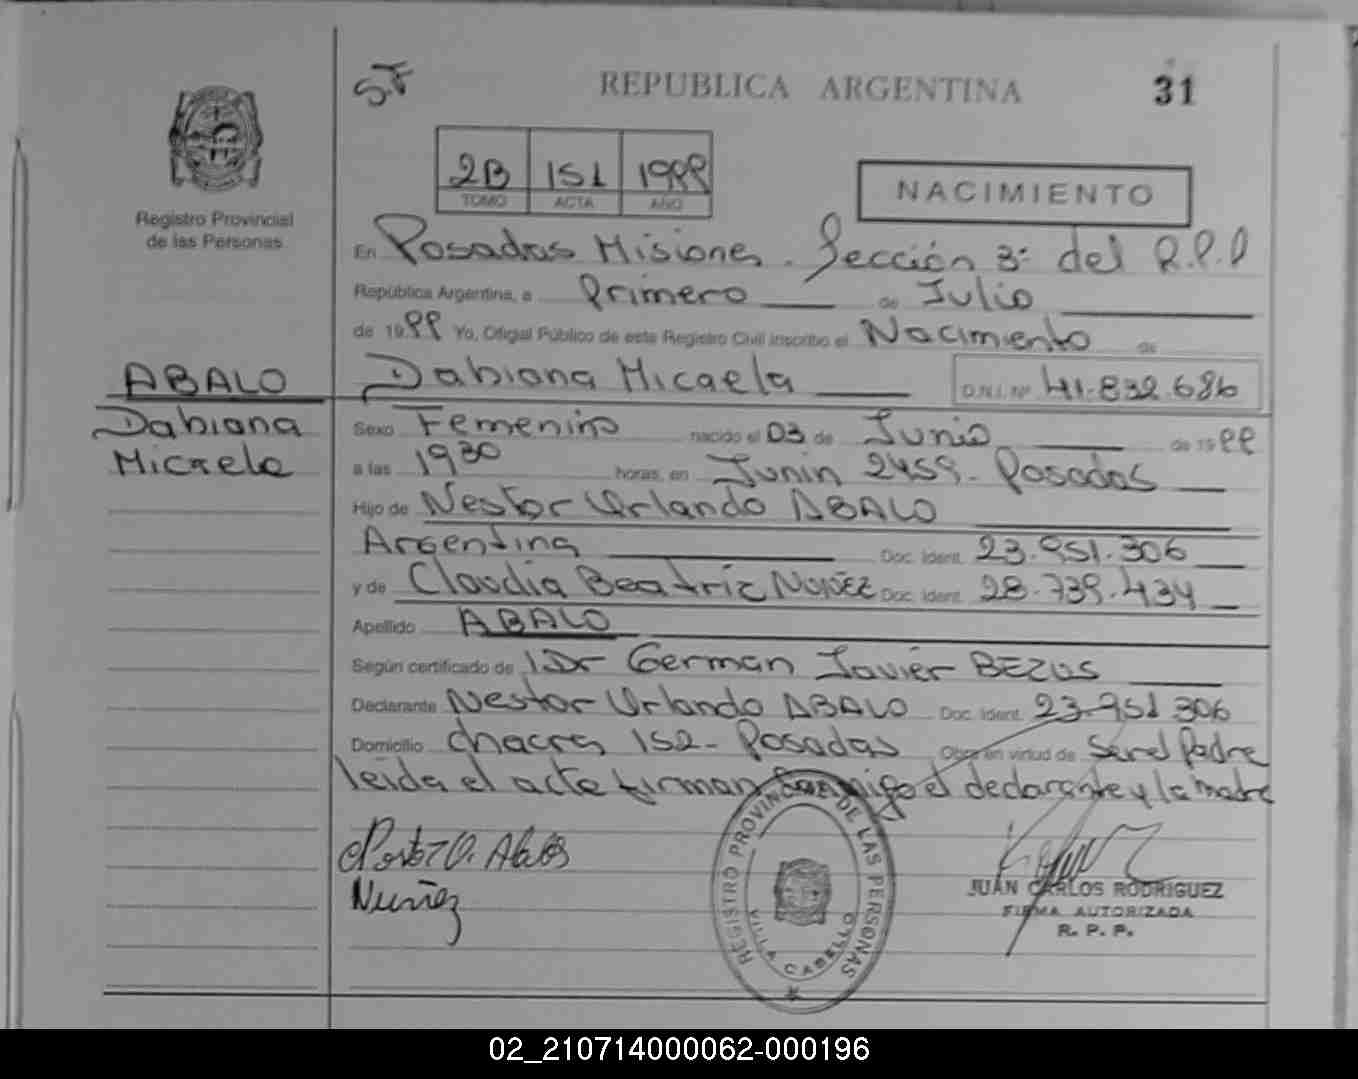 ST
REPUBLICA ARGENTINA
31
2B 151 1999
TOMO ACTA AÑO
NACIMIENTO
Registro Provincial
de las Personas
En Posadas Misiones. Sección 3ª del R.P.P
República Argentina, a Primero de Julio
de 1999 Yo, Oficial Público de este Registro Civil inscribo el Nacimiento de
ABALO
Dabiana Micaela
D.N.I. Nº 41.832.686
Dabiana
Micaela
Sexo Femenino nacido el 03 de Junio de 1999
a las 1930 horas, en Junin 2459 - Posadas
Hijo de Nestor Orlando ABALO
Argentina Doc. Ident. 23.951.306
y de Claudia Beatriz NUÑEZ Doc. Ident. 28.739.434
Apellido ABALO
Según certificado de Dr German Javier BEZUS
Declarante Nestor Orlando ABALO Doc. Ident. 23.951 306
Domicilio chacra 152 - Posadas Obra en virtud de ser el Padre
leida el acta firman conmigo el declarante y la madre
Nestor O. Abalo
Nuñez
REGISTRO PROVINCIAL DE LAS PERSONAS
VILLA CABELLO
JUAN CARLOS RODRIGUEZ
FIRMA AUTORIZADA
R. P. P.
02_210714000062-000196